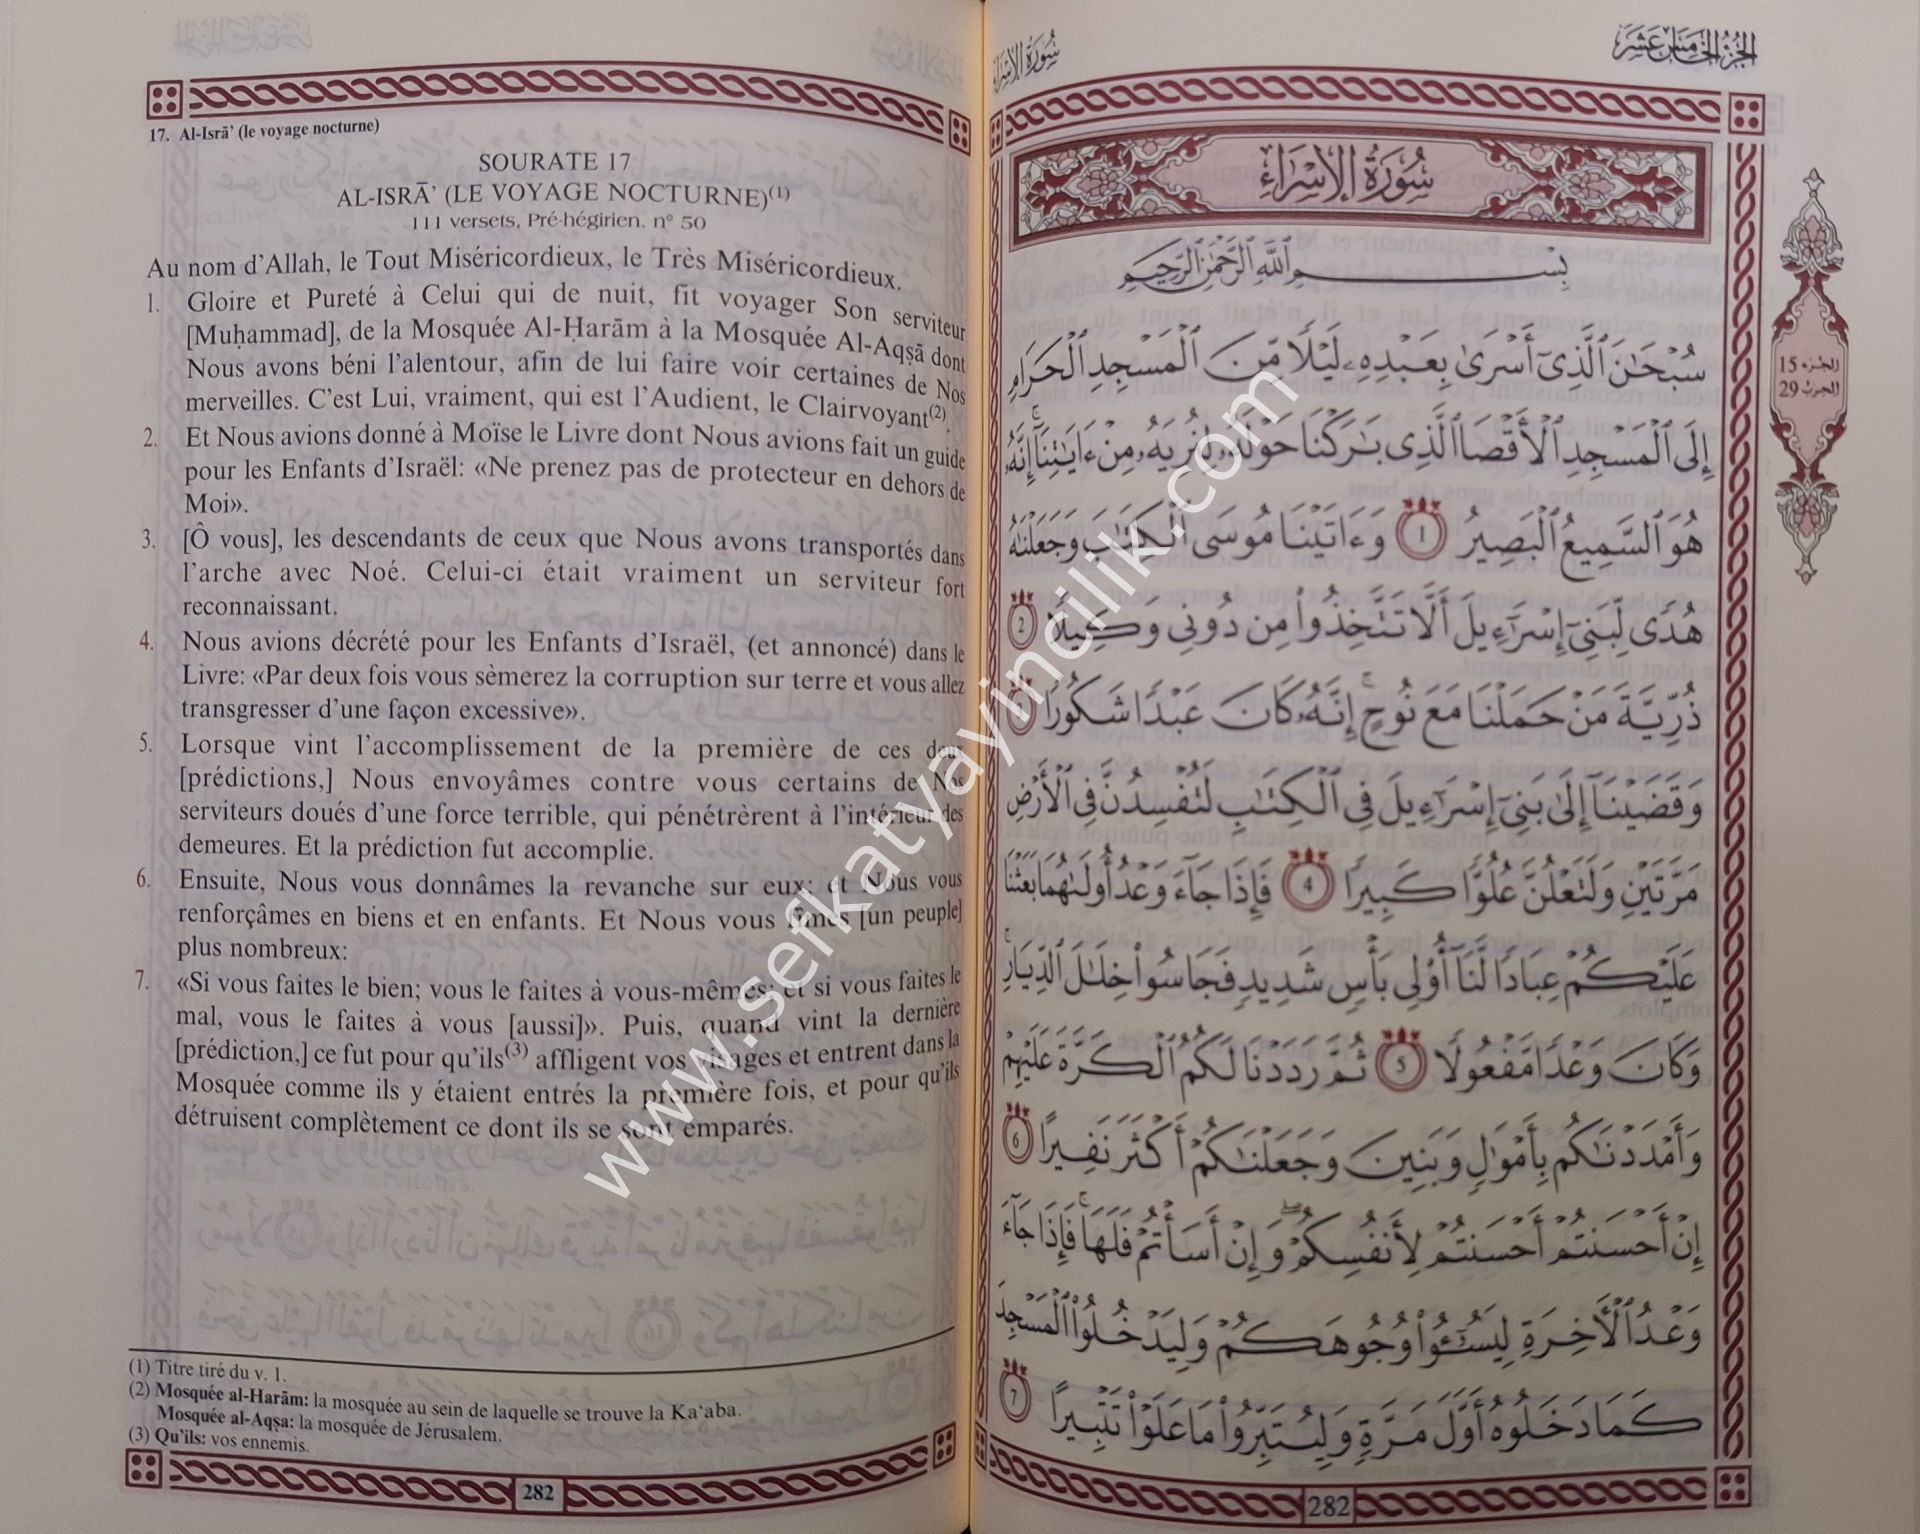 17. Al-Isrā' (le voyage nocturne)
SOURATE 17
AL-ISRĀ' (LE VOYAGE NOCTURNE)(1)
111 versets, Pré-hégirien. n° 50
Au nom d'Allah, le Tout Miséricordieux, le Très Miséricordieux.
1. Gloire et Pureté à Celui qui de nuit, fit voyager Son serviteur
[Muḥammad], de la Mosquée Al-Ḥarām à la Mosquée Al-Aqṣā dont
Nous avons béni l'alentour, afin de lui faire voir certaines de Nos
merveilles. C'est Lui, vraiment, qui est l'Audient, le Clairvoyant(2).
2. Et Nous avions donné à Moïse le Livre dont Nous avions fait un guide
pour les Enfants d'Israël: «Ne prenez pas de protecteur en dehors de
Moi».
3. [Ô vous], les descendants de ceux que Nous avons transportés dans
l'arche avec Noé. Celui-ci était vraiment un serviteur fort
reconnaissant.
4. Nous avions décrété pour les Enfants d'Israël, (et annoncé) dans le
Livre: «Par deux fois vous sèmerez la corruption sur terre et vous allez
transgresser d'une façon excessive».
5. Lorsque vint l'accomplissement de la première de ces deux
[prédictions,] Nous envoyâmes contre vous certains de Nos
serviteurs doués d'une force terrible, qui pénétrèrent à l'intérieur des
demeures. Et la prédiction fut accomplie.
6. Ensuite, Nous vous donnâmes la revanche sur eux; et Nous vous
renforçâmes en biens et en enfants. Et Nous vous fîmes [un peuple]
plus nombreux:
7. «Si vous faites le bien; vous le faites à vous-mêmes; et si vous faites le
mal, vous le faites à vous [aussi]». Puis, quand vint la dernière
[prédiction,] ce fut pour qu'ils(3) affligent vos visages et entrent dans la
Mosquée comme ils y étaient entrés la première fois, et pour qu'ils
détruisent complètement ce dont ils se sont emparés.
(1) Titre tiré du v. 1.
(2) Mosquée al-Harām: la mosquée au sein de laquelle se trouve la Ka'aba.
Mosquée al-Aqṣa: la mosquée de Jérusalem.
(3) Qu'ils: vos ennemis.
282
الجزء الخامس عشر
سورة الإسراء
سُورَةُ الإِسْرَاءِ
بِسْمِ ٱللَّهِ ٱلرَّحْمَٰنِ ٱلرَّحِيمِ
سُبْحَٰنَ ٱلَّذِىٓ أَسْرَىٰ بِعَبْدِهِۦ لَيْلًا مِّنَ ٱلْمَسْجِدِ ٱلْحَرَامِ
إِلَى ٱلْمَسْجِدِ ٱلْأَقْصَا ٱلَّذِى بَٰرَكْنَا حَوْلَهُۥ لِنُرِيَهُۥ مِنْ ءَايَٰتِنَآ ۚ إِنَّهُۥ
هُوَ ٱلسَّمِيعُ ٱلْبَصِيرُ 1 وَءَاتَيْنَا مُوسَى ٱلْكِتَٰبَ وَجَعَلْنَٰهُ
هُدًى لِّبَنِىٓ إِسْرَٰٓءِيلَ أَلَّا تَتَّخِذُوا۟ مِن دُونِى وَكِيلًا 2
ذُرِّيَّةَ مَنْ حَمَلْنَا مَعَ نُوحٍ ۚ إِنَّهُۥ كَانَ عَبْدًا شَكُورًا
وَقَضَيْنَآ إِلَىٰ بَنِىٓ إِسْرَٰٓءِيلَ فِى ٱلْكِتَٰبِ لَتُفْسِدُنَّ فِى ٱلْأَرْضِ
مَرَّتَيْنِ وَلَتَعْلُنَّ عُلُوًّا كَبِيرًا 4 فَإِذَا جَآءَ وَعْدُ أُولَىٰهُمَا بَعَثْنَا
عَلَيْكُمْ عِبَادًا لَّنَآ أُو۟لِى بَأْسٍ شَدِيدٍ فَجَاسُوا۟ خِلَٰلَ ٱلدِّيَارِ ۚ
وَكَانَ وَعْدًا مَّفْعُولًا 5 ثُمَّ رَدَدْنَا لَكُمُ ٱلْكَرَّةَ عَلَيْهِمْ
وَأَمْدَدْنَٰكُم بِأَمْوَٰلٍ وَبَنِينَ وَجَعَلْنَٰكُمْ أَكْثَرَ نَفِيرًا 6
إِنْ أَحْسَنتُمْ أَحْسَنتُمْ لِأَنفُسِكُمْ ۖ وَإِنْ أَسَأْتُمْ فَلَهَا ۚ فَإِذَا جَآءَ
وَعْدُ ٱلْأَخِرَةِ لِيَسُۥٓـُٔوا۟ وُجُوهَكُمْ وَلِيَدْخُلُوا۟ ٱلْمَسْجِدَ
كَمَا دَخَلُوهُ أَوَّلَ مَرَّةٍ وَلِيُتَبِّرُوا۟ مَا عَلَوْا۟ تَتْبِيرًا 7
الجزء 15
الحزب 29
282
www.sefkatyayincilik.com